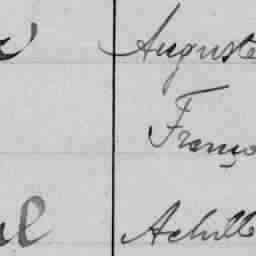 Auguste
Franço
Achille